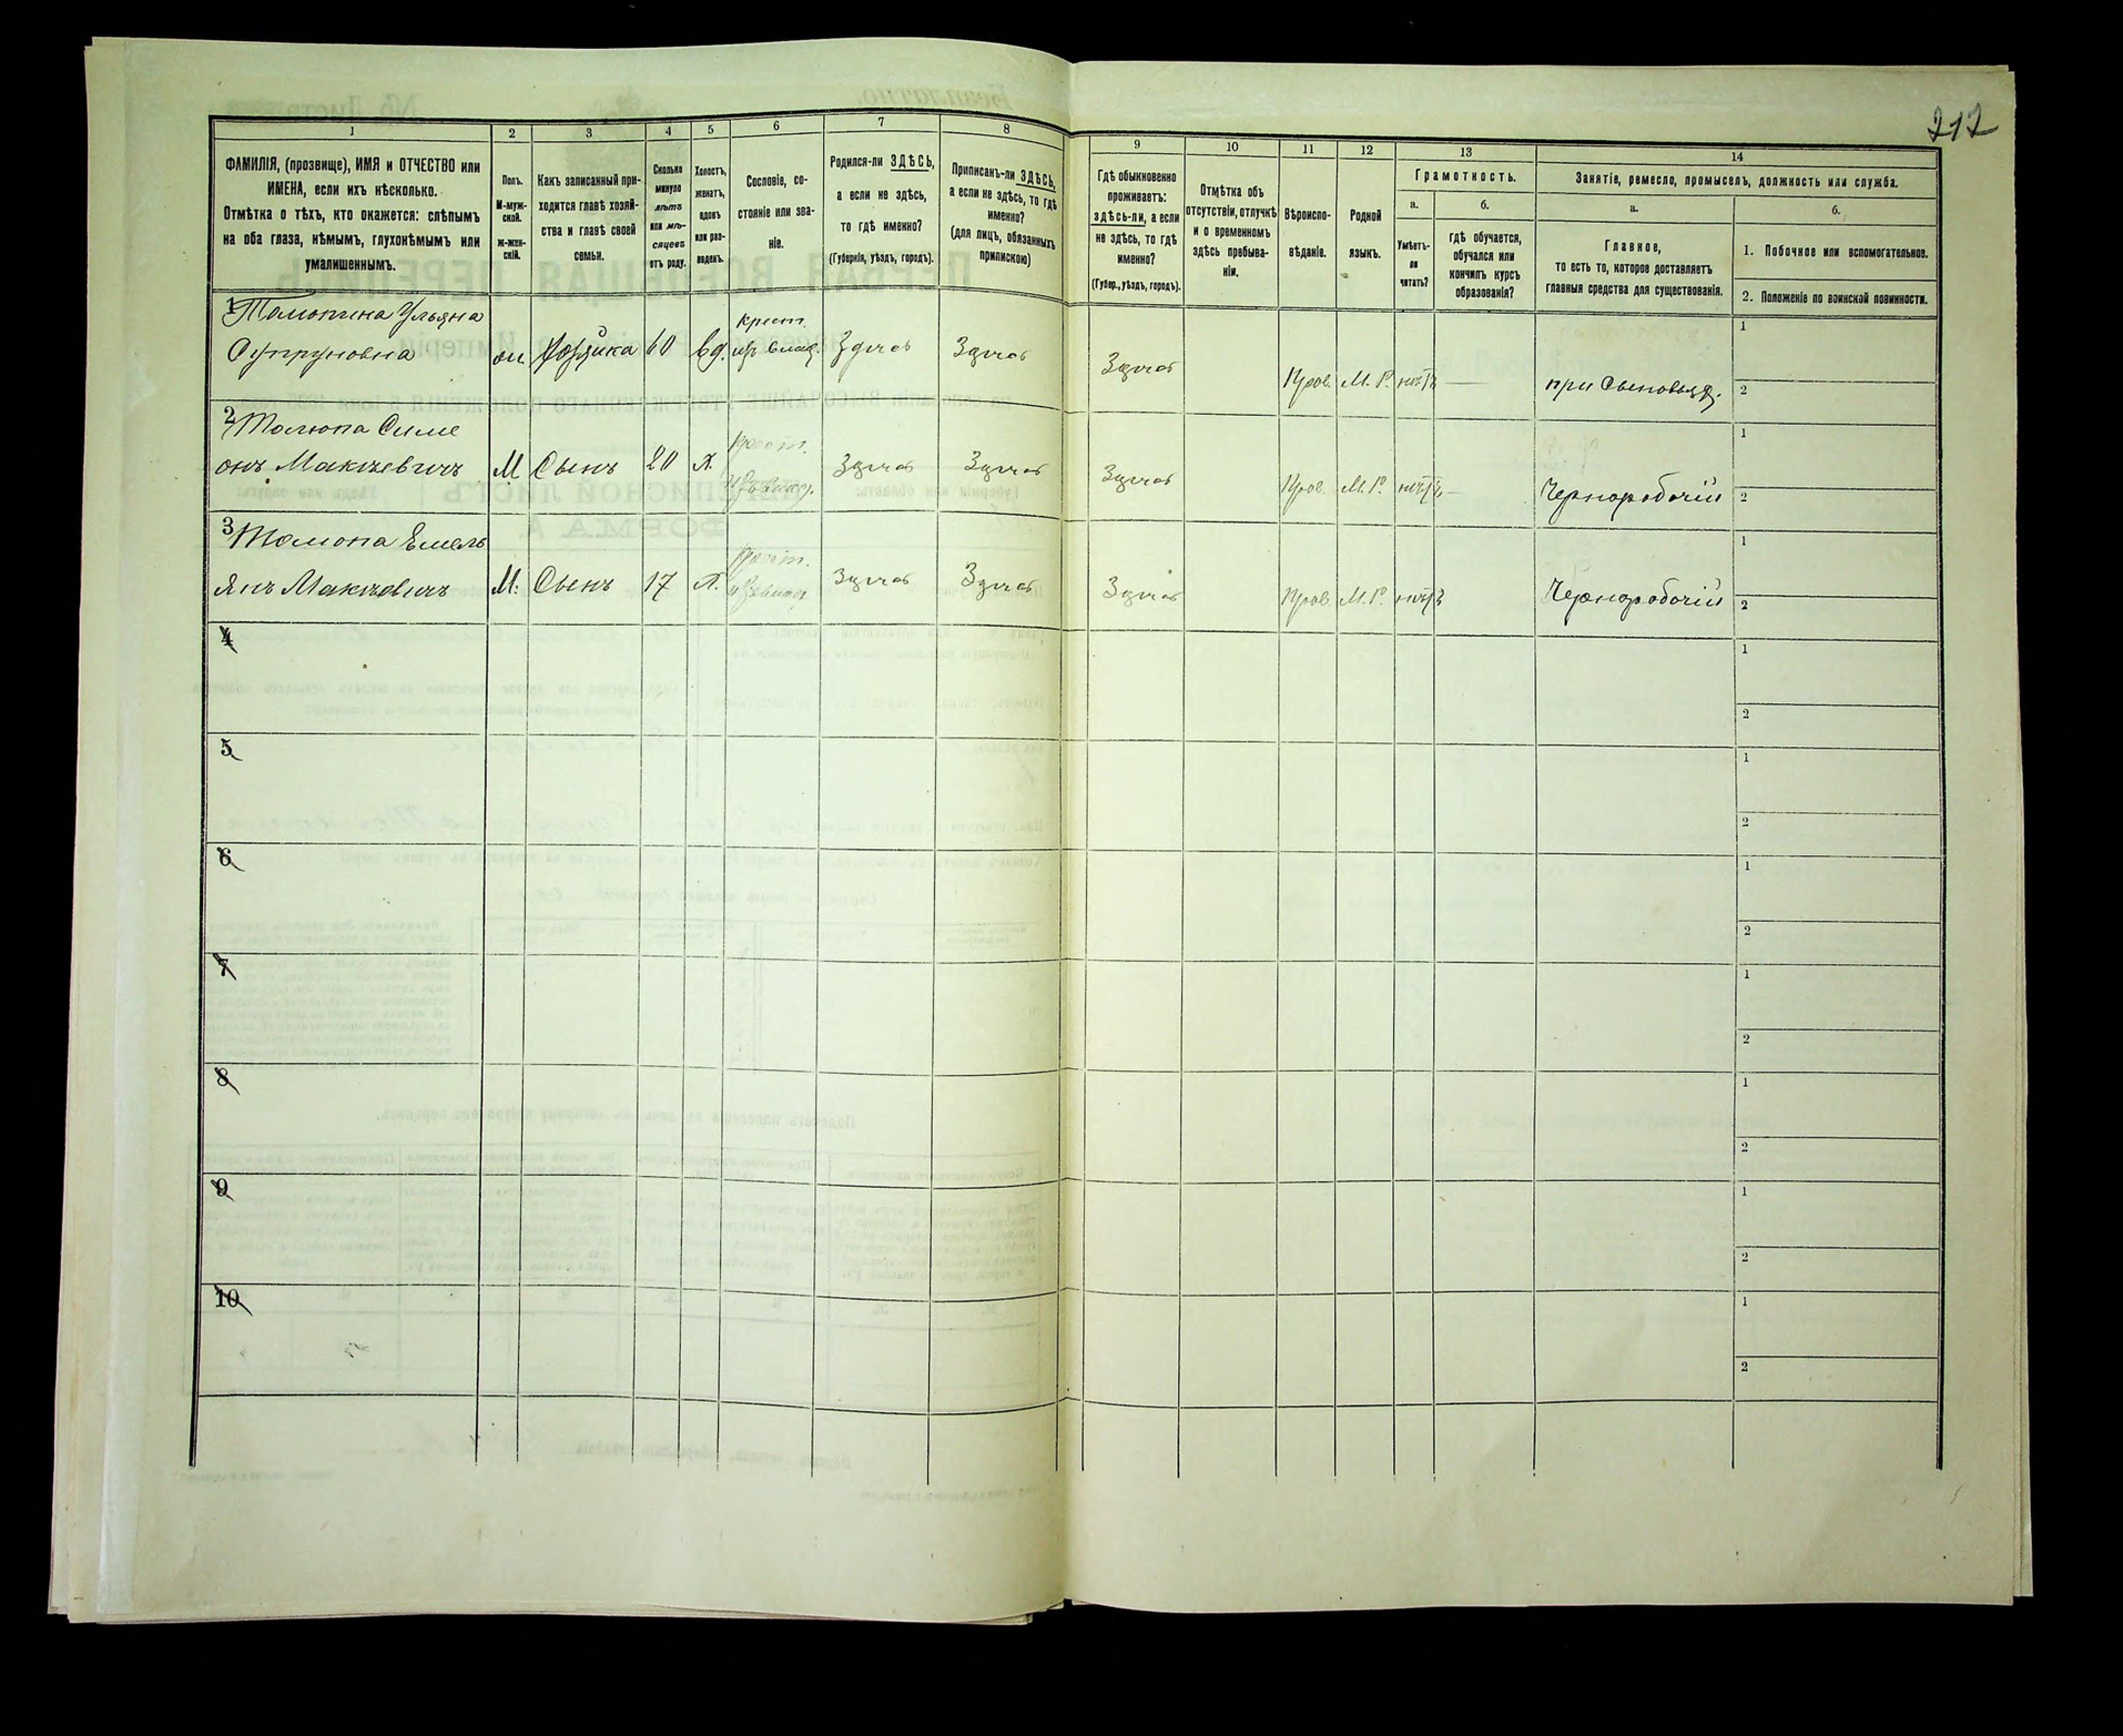 212
1
2
3
4
5
6
7
8
9
10
11
12
13
14
ФАМИЛІЯ, (прозвище), ИМЯ и ОТЧЕСТВО или
ИМЕНА, если ихъ нѣсколько.
Отмѣтка о тѣхъ, кто окажется: слѣпымъ
на оба глаза, нѣмымъ, глухонѣмымъ или
умалишеннымъ.
Полъ.
М-муж-
ской.
ж-жен-
скій.
Какъ записанный при-
ходится главѣ хозяй-
ства и главѣ своей
семьи.
Сколько
минуло
лѣтъ
или мѣ-
сяцевъ
отъ роду.
Холостъ,
женатъ,
вдовъ
или раз-
веденъ.
Сословіе, со-
стояніе или зва-
ніе.
Родился-ли ЗДѢСЬ,
а если не здѣсь,
то гдѣ именно?
(Губернія, уѣздъ, городъ).
Приписанъ-ли ЗДѢСЬ,
а если не здѣсь, то гдѣ
именно?
(для лицъ, обязанныхъ
припискою)
Гдѣ обыкновенно
проживаетъ:
здѣсь-ли, а если
не здѣсь, то гдѣ
именно?
(Губер., уѣздъ, городъ).
Отмѣтка объ
отсутствіи, отлучкѣ
и о временномъ
здѣсь пребыва-
ніи.
Вѣроиспо-
вѣданіе.
Родной
языкъ.
Грамотность.
а.
б.
Умѣетъ-
ли
читать?
гдѣ обучается,
обучался или
кончилъ курсъ
образованія?
Занятіе, ремесло, промыселъ, должность или служба.
а.
б.
Главное,
то есть то, которое доставляетъ
главныя средства для существованія.
1. Побочное или вспомогательное.
2. Положеніе по воинской повинности.
1 Ульяна
Супруновна
60
вд.
крест.
Здѣсь
Здѣсь
Здѣсь
Прав.
М. Р.
при сыновьях.
1
2
2 Толюпа Симе
онъ
М
Сынъ
20
Х.
Здѣсь
Здѣсь
Здѣсь
Прав.
М. Р.
Чернорабочій
1
2
3 Толюпа Емель
янъ
М.
Сынъ
17
Х.
Здѣсь
Здѣсь
Здѣсь
Прав.
М. Р.
Чернорабочій
1
2
4
1
2
5
1
2
6
1
2
7
1
2
8
1
2
9
1
2
10
1
2